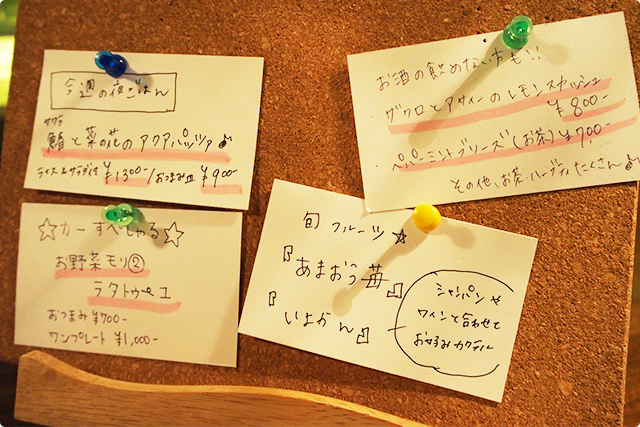 今週の夜ごはん
サワラ
鰆と菜の花のアクアパッツァ♪
ライス&サラダ付 ¥1300-/おつまみ皿 ¥900-
お酒の飲めない方も!!
・ザクロとアサイーのレモンスカッシュ
¥800-
・ペパーミントブリーズ(お茶)¥700-
その他、お茶・ハーブティたくさん♪
☆カーすぺしゃる☆
お野菜モリ②
ラタトゥーユ
おつまみ¥700-
ワンプレート ¥1,000-
旬フルーツ☆
『あまおう苺』
『いよかん』
シャンパンや
ワインと合わせて
お好みカクテル